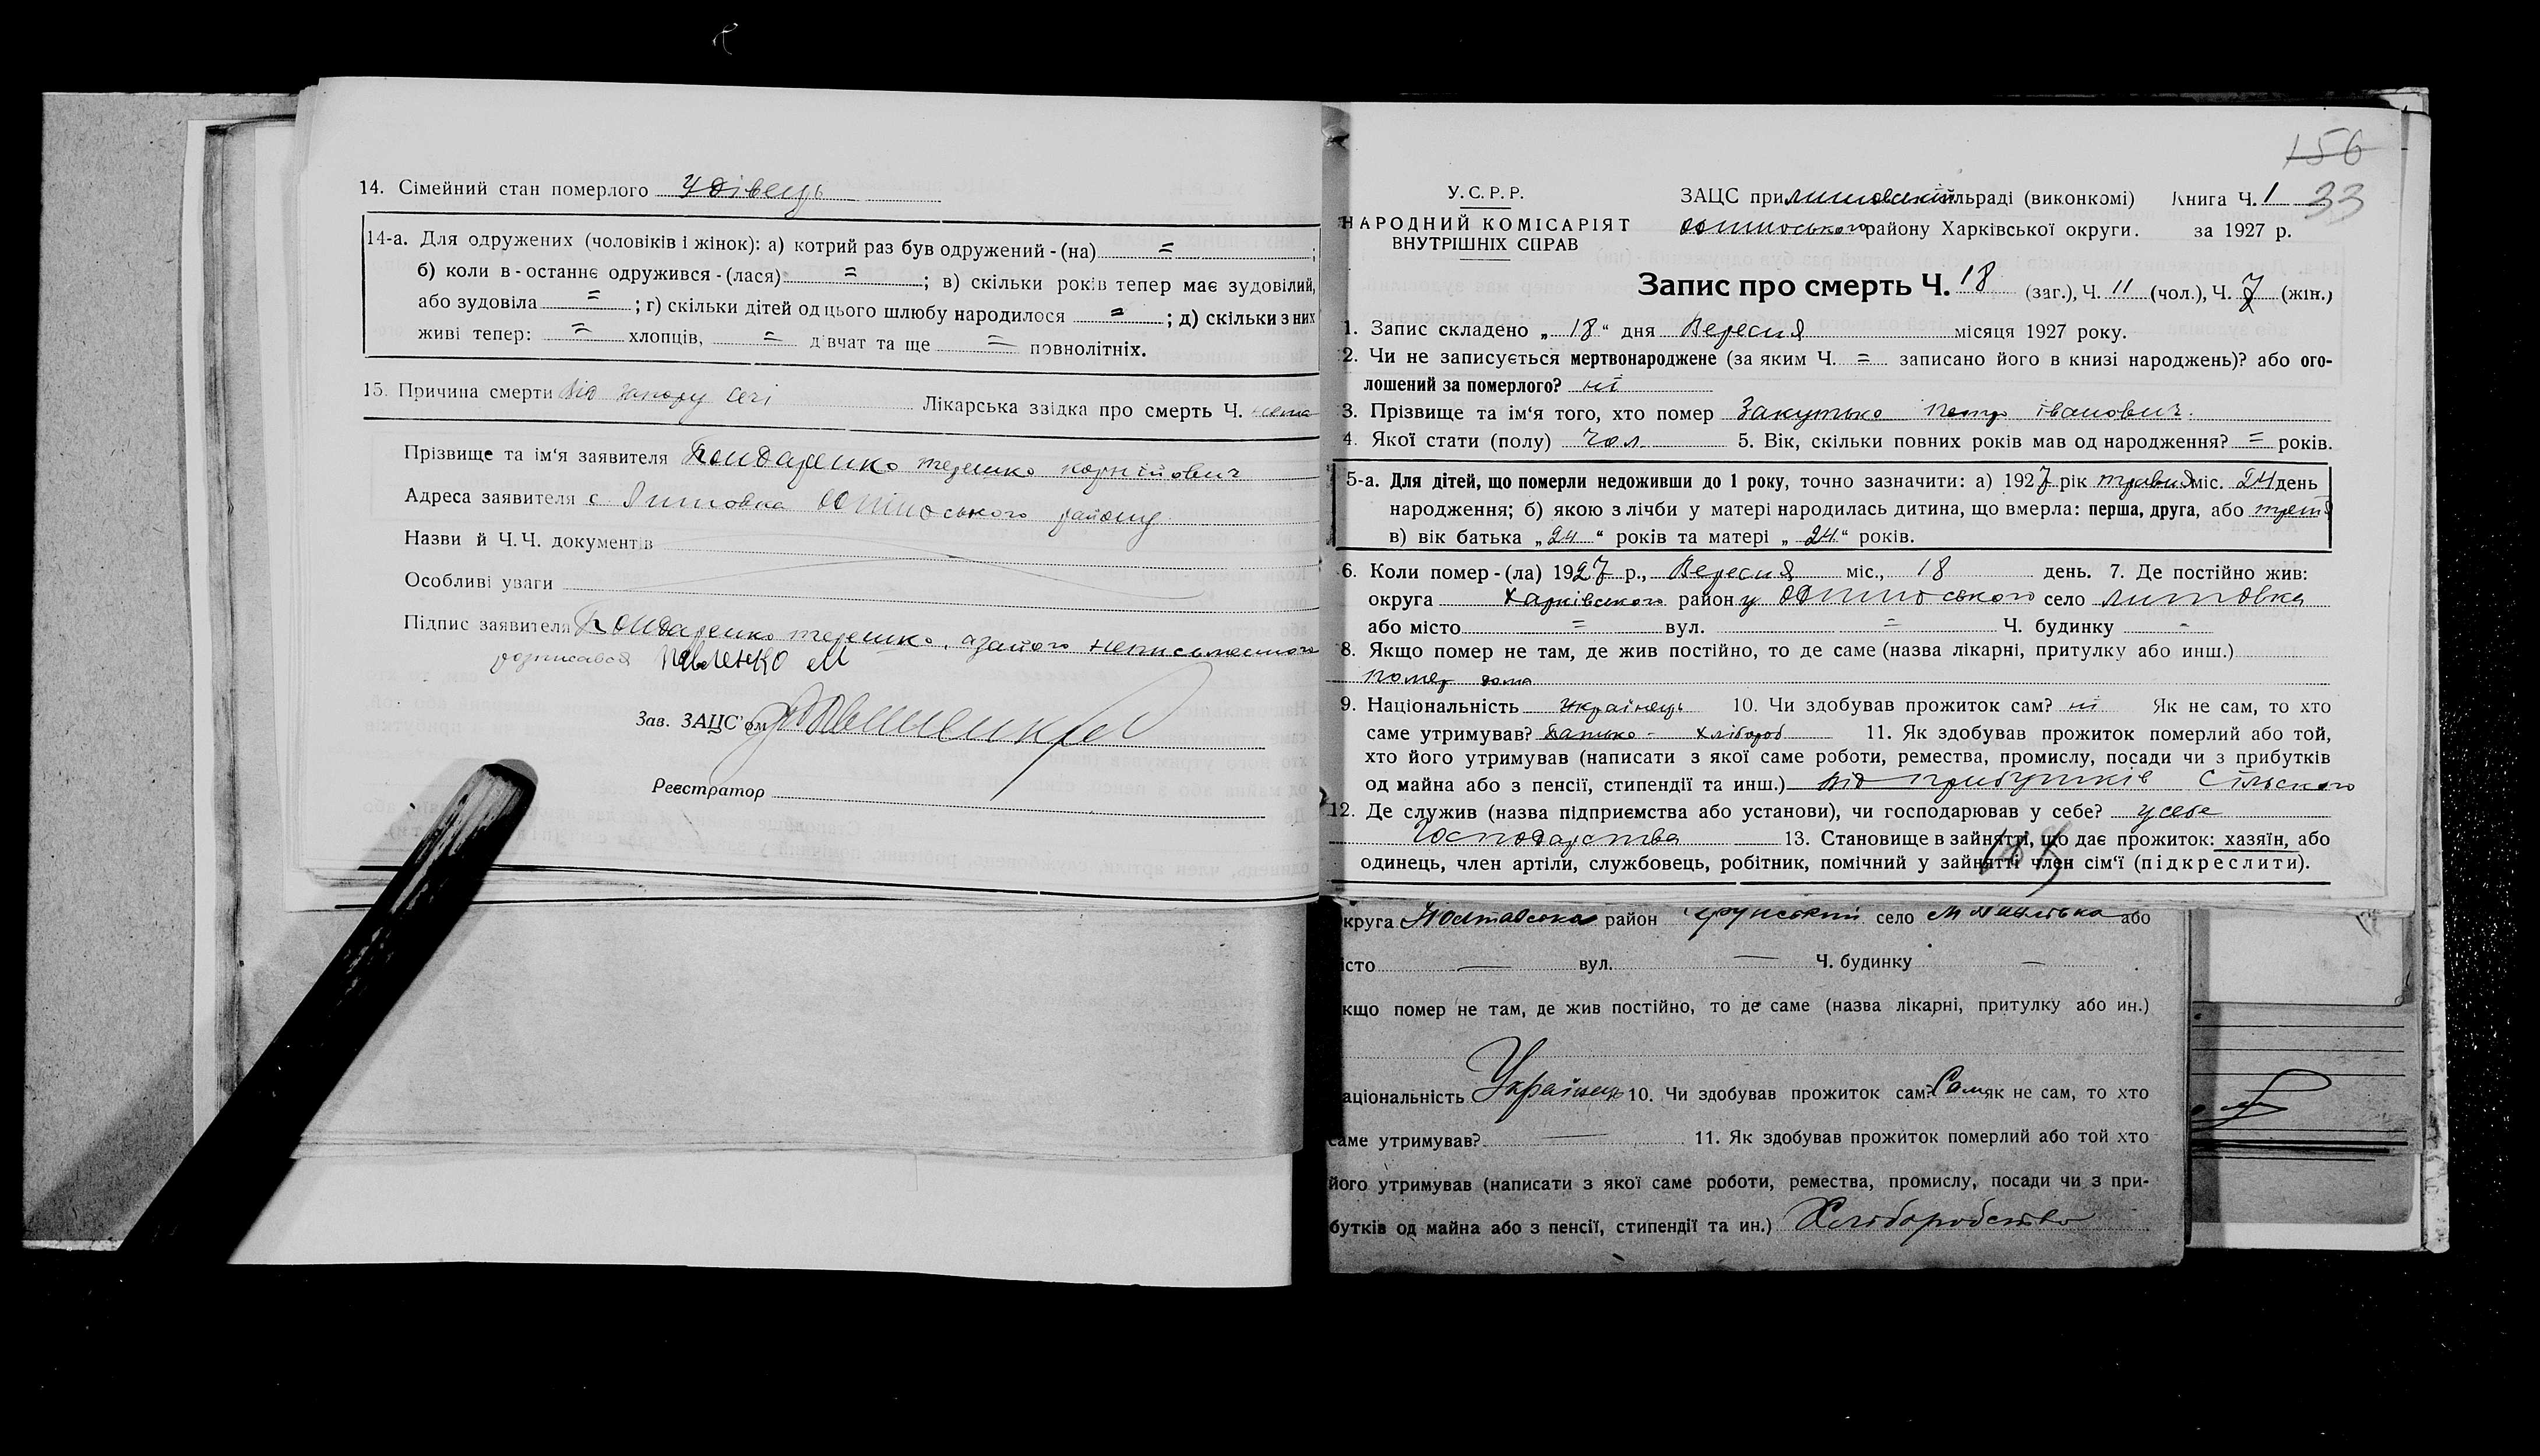 14. Сімейний стан померлого Удівець
14-а. Для одружених (чоловіків і жінок): а) котрий раз був одружений - (на) = ;
б) коли в - останнє одружився - (лася) = ; в) скільки років тепер має зудовілий,
або зудовіла = ; г) скільки дітей од цього шлюбу народилося = ; д) скільки з них
живі тепер: = хлопців, = дівчат та ще = повнолітніх.
15. Причина смерти від Лікарська ззідка про смерть Ч. нема
Прізвище та ім'я заявителя Бондаренко терешко корнійович
Адреса заявителя с Липовка району
Назви й Ч.Ч. документів
Особливі уваги
Підпис заявителя Бондаренко терешко, азайого неписьменного
розписався Павленко М
Зав. ЗАЦС'ом
Реєстратор
156
33
У.С.Р.Р.
НАРОДНИЙ КОМІСАРІЯТ
ВНУТРІШНІХ СПРАВ
ЗАЦС при липовській сільраді (виконкомі) Книга Ч. 1
району Харківської округи. за 1927 р.
Запис про смерть Ч. 18 (заг.), Ч. 11 (чол.), Ч. 7 (жін.)
1. Запис складено „ 18 “ дня Вересня місяця 1927 року.
2. Чи не записується мертвонароджене (за яким Ч. = записано його в книзі народжень)? або ого-
лошений за померлого? ні
3. Прізвище та ім'я того, хто помер Закутько петро іванович.
4. Якої стати (полу) чол 5. Вік, скільки повних років мав од народження? = років.
5-а. Для дітей, що померли недоживши до 1 року, точно зазначити: а) 1927 рік травня міс. день
народження; б) якою з лічби у матері народилась дитина, що вмерла: перша, друга, або третя
в) вік батька „ 24 “ років та матері „ 24 “ років.
6. Коли помер - (ла) 1927 р., Вересня міс., 18 день. 7. Де постійно жив:
округа Харківського району село липовка
або місто = вул. = Ч. будинку -
8. Якщо помер не там, де жив постійно, то де саме (назва лікарні, притулку або инш.)
помер дома
9. Національність Українець 10. Чи здобував прожиток сам? ні Як не сам, то хто
саме утримував? батько - хлібороб 11. Як здобував прожиток померлий або той,
хто його утримував (написати з якої саме роботи, ремества, промислу, посади чи з прибутків
од майна або з пенсії, стипендії та инш.) від прибутків Сільського
12. Де служив (назва підприємства або установи), чи господарював у себе? усебе
Господарства 13. Становище в зайнятті, що дає прожиток: хазяїн, або
одинець, член артіли, службовець, робітник, помічний у зайнятті член сім'ї (підкреслити).
округа Полтавська район село або
місто — вул. — Ч. будинку —
якщо помер не там, де жив постійно, то де саме (назва лікарні, притулку або ин.)
національність Українець 10. Чи здобував прожиток сам? Сам як не сам, то хто
саме утримував? — 11. Як здобував прожиток померлий або той хто
його утримував (написати з якої саме роботи, ремества, промислу, посади чи з при-
бутків од майна або з пенсії, стипендії та ин.) Хліборобство